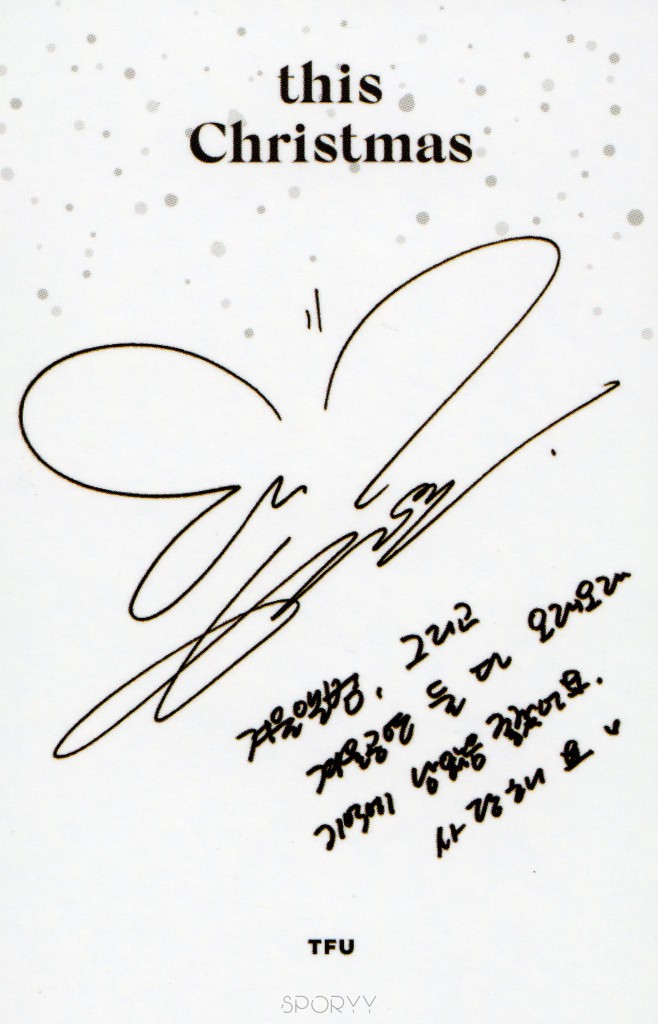 this
Christmas
겨울앨범, 그리고
겨울공연 둘 다 오래오래
기억에 남았음 좋겠어요.
사랑해요
TFU
SPORYY